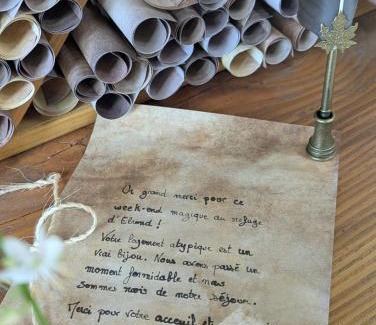 Un grand merci pour ce
week-end magique au refuge
d'Elrond !
Votre logement atypique est un
vrai bijou. Nous avons passé un
moment formidable et nous
sommes ravis de notre séjour.
Merci pour votre accueil et